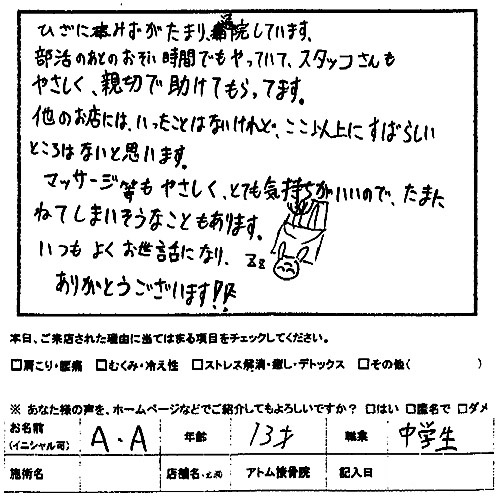 ひざに水がたまり、通院しています。
部活のあとのおそい時間でもやっていて、スタッフさんも
やさしく、親切で助けてもらってます。
他のお店には、いったことはないけれど、ここ以上にすばらしい
ところはないと思います。
マッサージ等もやさしく、とても気持ちがいいので、たまに
ねてしまいそうなこともあります。
いつもよくお世話になり、
zz
ありがとうございます!!
本日、ご来店された理由に当てはまる項目をチェックしてください。
□肩こり・腰痛 □むくみ・冷え性 □ストレス解消・癒し・デトックス □その他( )
※ あなた様の声を、ホームページなどでご紹介してもよろしいですか? □はい □匿名で □ダメ
お名前 A.A 年齢 13才 職業 中学生
(イニシャル可)
施術名 店舗名 アトム接骨院 記入日